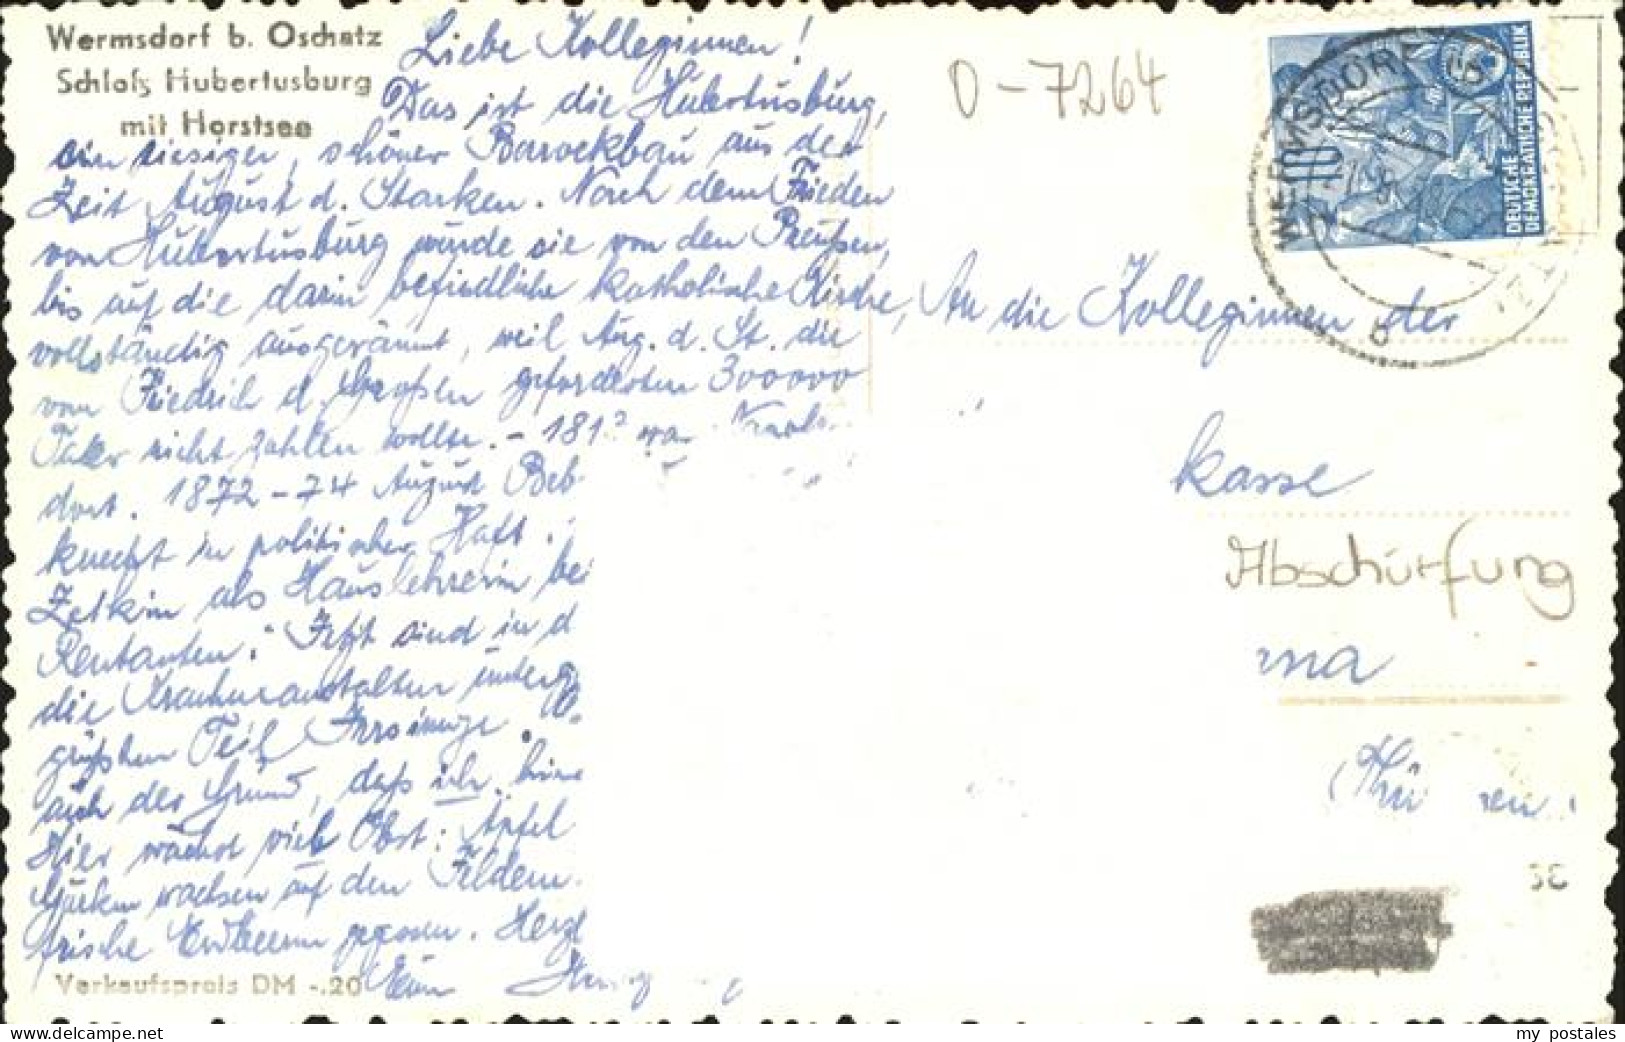 Wermsdorf b. Oschatz
Schloß Hubertusburg
mit Horstsee
Liebe Kolleginnen!
Das ist die Hubertusburg,
ein riesiger, schöner Barockbau aus der
Zeit August d. Starken. Nach dem Frieden
von Hubertusburg wurde sie von den Preußen,
bis auf die darin befindliche katholische Kirche,
vollständig ausgeräumt, weil Aug. d. St. die
von Friedrich d. Großen geforderten 300000
Taler nicht zahlen wollte. - 181
dort. 1872-74 August Beb
knecht in politischer Haft.
Zetkin als Hauslehrerin bei
Jetzt sind in d
die Krankenanstalten unterg
größten Teil Irrsinnige.
auch der Grund, daß ich hier
Hier wächst viel Obst: Äpfel
Gurken wachsen auf den Feldern.
frische Erdbeeren gegessen. Herzl
Verkaufspreis DM -.20
0-7264
WERMSDORF
b
10
DEUTSCHE
DEMOKRATISCHE REPUBLIK
An die Kolleginnen der
kasse
Abschürfung
rna
(Thü en
my postales